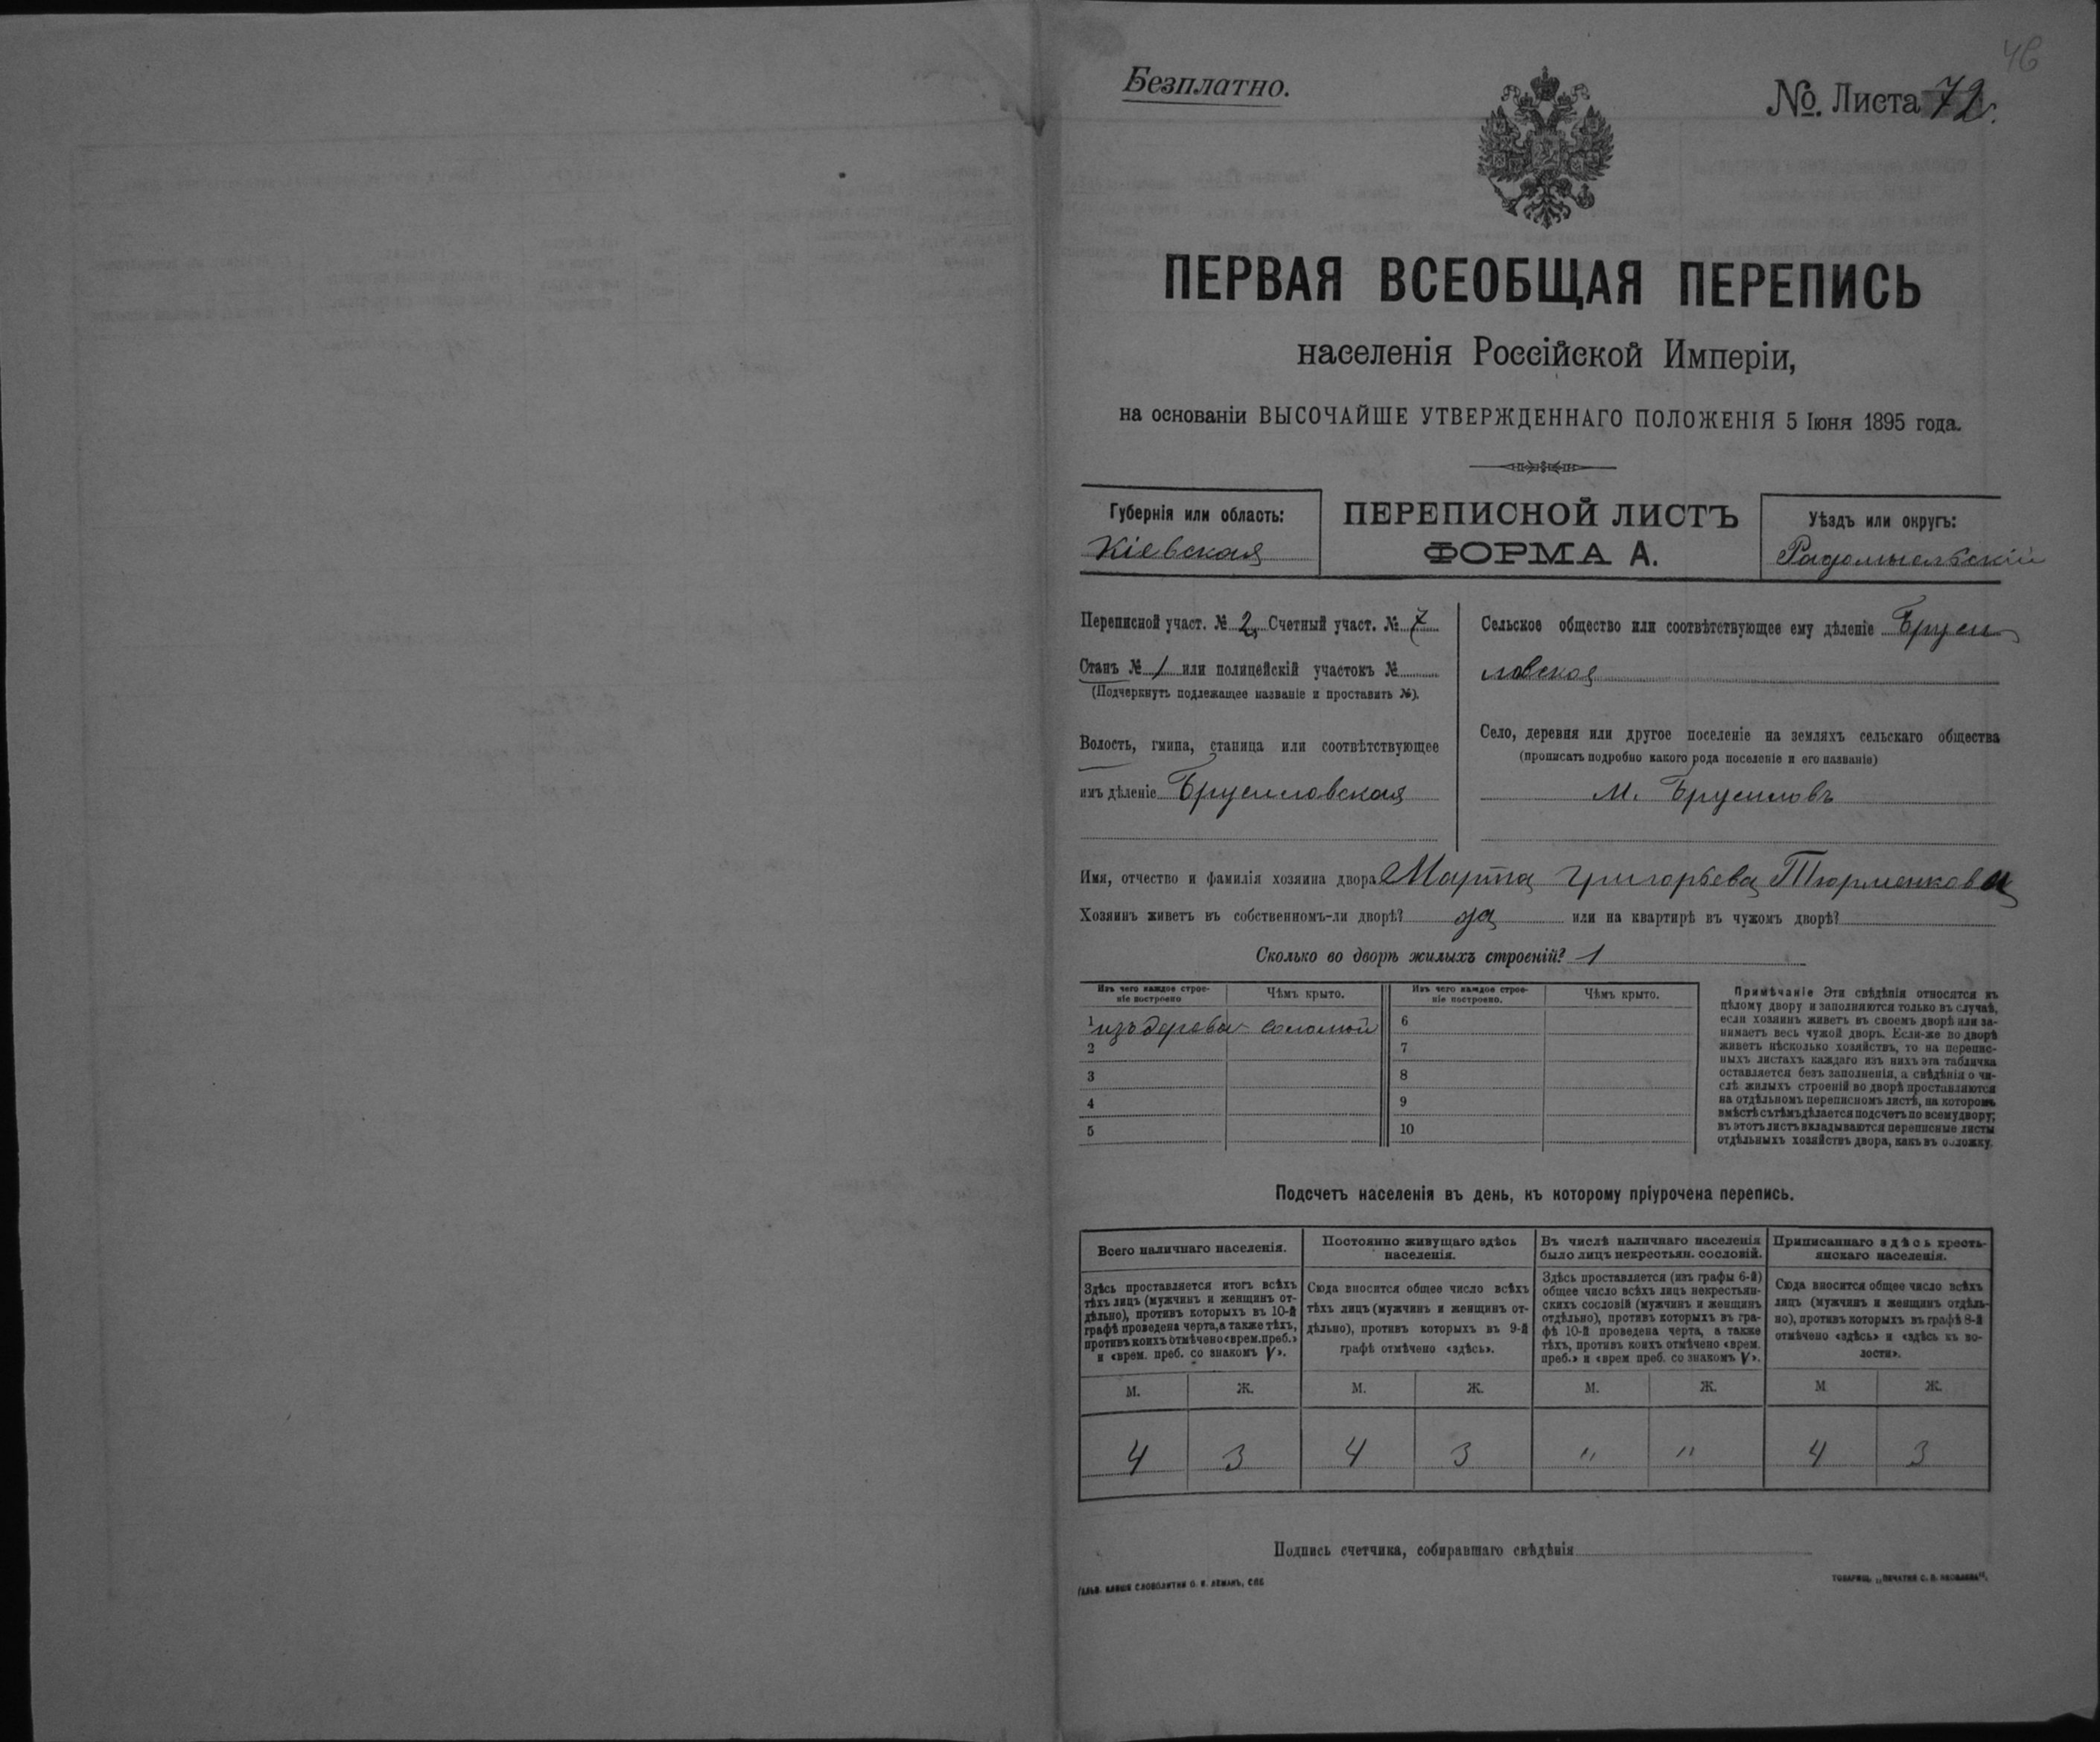 46
Безплатно.
№. Листа 72.
ПЕРВАЯ ВСЕОБЩАЯ ПЕРЕПИСЬ
населенія Россійской Имперіи,
на основаніи ВЫСОЧАЙШЕ УТВЕРЖДЕННАГО ПОЛОЖЕНІЯ 5 Іюня 1895 года.
Губернія или область:
Кіевская
ПЕРЕПИСНОЙ ЛИСТЪ
ФОРМА А.
Уѣздъ или округъ:
Радомысльскій
Переписной участ. № 2, Счетный участ. № 7
Станъ № 1 или полицейскій участокъ №
(Подчеркнуть подлежащее названіе и проставить №).
Волость, гмина, станица или соотвѣтствующее
имъ дѣленіе Брусиловская
Сельское общество или соотвѣтствующее ему дѣленіе Бруси
ловское
Село, деревня или другое поселеніе на земляхъ сельскаго общества
(прописать подробно какого рода поселеніе и его названіе)
М. Брусиловъ
Имя, отчество и фамилія хозяина двора Марта Григорьева Тюрменкова
Хозяинъ живетъ въ собственномъ-ли дворѣ? да или на квартирѣ въ чужомъ дворѣ?
Сколько во дворѣ жилыхъ строеній? 1
Изъ чего каждое строе-
ніе построено
Чѣмъ крыто.
Изъ чего каждое строе-
ніе построено.
Чѣмъ крыто.
1 изъ дерева соломой 6
2 7
3 8
4 9
5 10
Примѣчаніе Эти свѣдѣнія относятся къ
цѣлому двору и заполняются только въ случаѣ,
если хозяинъ живетъ въ своемъ дворѣ или за-
нимаетъ весь чужой дворъ. Если-же во дворѣ
живетъ нѣсколько хозяйствъ, то на перепис-
ныхъ листахъ каждаго изъ нихъ эта табличка
оставляется безъ заполненія, а свѣдѣнія о чи-
слѣ жилыхъ строеній во дворѣ проставляются
на отдѣльномъ переписномъ листѣ, на которомъ
вмѣстѣ съ тѣмъ дѣлается подсчетъ по всему двору;
въ этотъ листъ вкладываются переписные листы
отдѣльныхъ хозяйствъ двора, какъ въ обложку.
Подсчетъ населенія въ день, къ которому пріурочена перепись.
Всего наличнаго населенія.
Постоянно живущаго здѣсь
населенія.
Въ числѣ наличнаго населенія
было лицъ некрестьян. сословій.
Приписаннаго здѣсь кресть-
янскаго населенія.
Здѣсь проставляется итогъ всѣхъ
тѣхъ лицъ (мужчинъ и женщинъ от-
дѣльно), противъ которыхъ въ 10-й
графѣ проведена черта, а также тѣхъ,
противъ коихъ отмѣчено «врем. преб.»
и «врем. преб. со знакомъ V».
Сюда вносится общее число всѣхъ
тѣхъ лицъ (мужчинъ и женщинъ от-
дѣльно), противъ которыхъ въ 9-й
графѣ отмѣчено «здѣсь».
Здѣсь проставляется (изъ графы 6-й)
общее число всѣхъ лицъ некрестьян-
скихъ сословій (мужчинъ и женщинъ
отдѣльно), противъ которыхъ въ гра-
фѣ 10-й проведена черта, а также
тѣхъ, противъ коихъ отмѣчено «врем.
преб.» и «врем преб. со знакомъ V».
Сюда вносится общее число всѣхъ
лицъ (мужчинъ и женщинъ отдѣль-
но), противъ которыхъ въ графѣ 8-й
отмѣчено «здѣсь» и «здѣсь къ во-
лости».
М. Ж. М. Ж. М. Ж. М Ж.
4 3 4 3 " " 4 3
Подпись счетчика, собиравшаго свѣдѣнія
СЛОВОЛИТНИ О. И. ЛЕМАНЪ, СПБ
ТОВАРИЩ. „ПЕЧАТНЯ С. П. ЯКОВЛЕВА“.